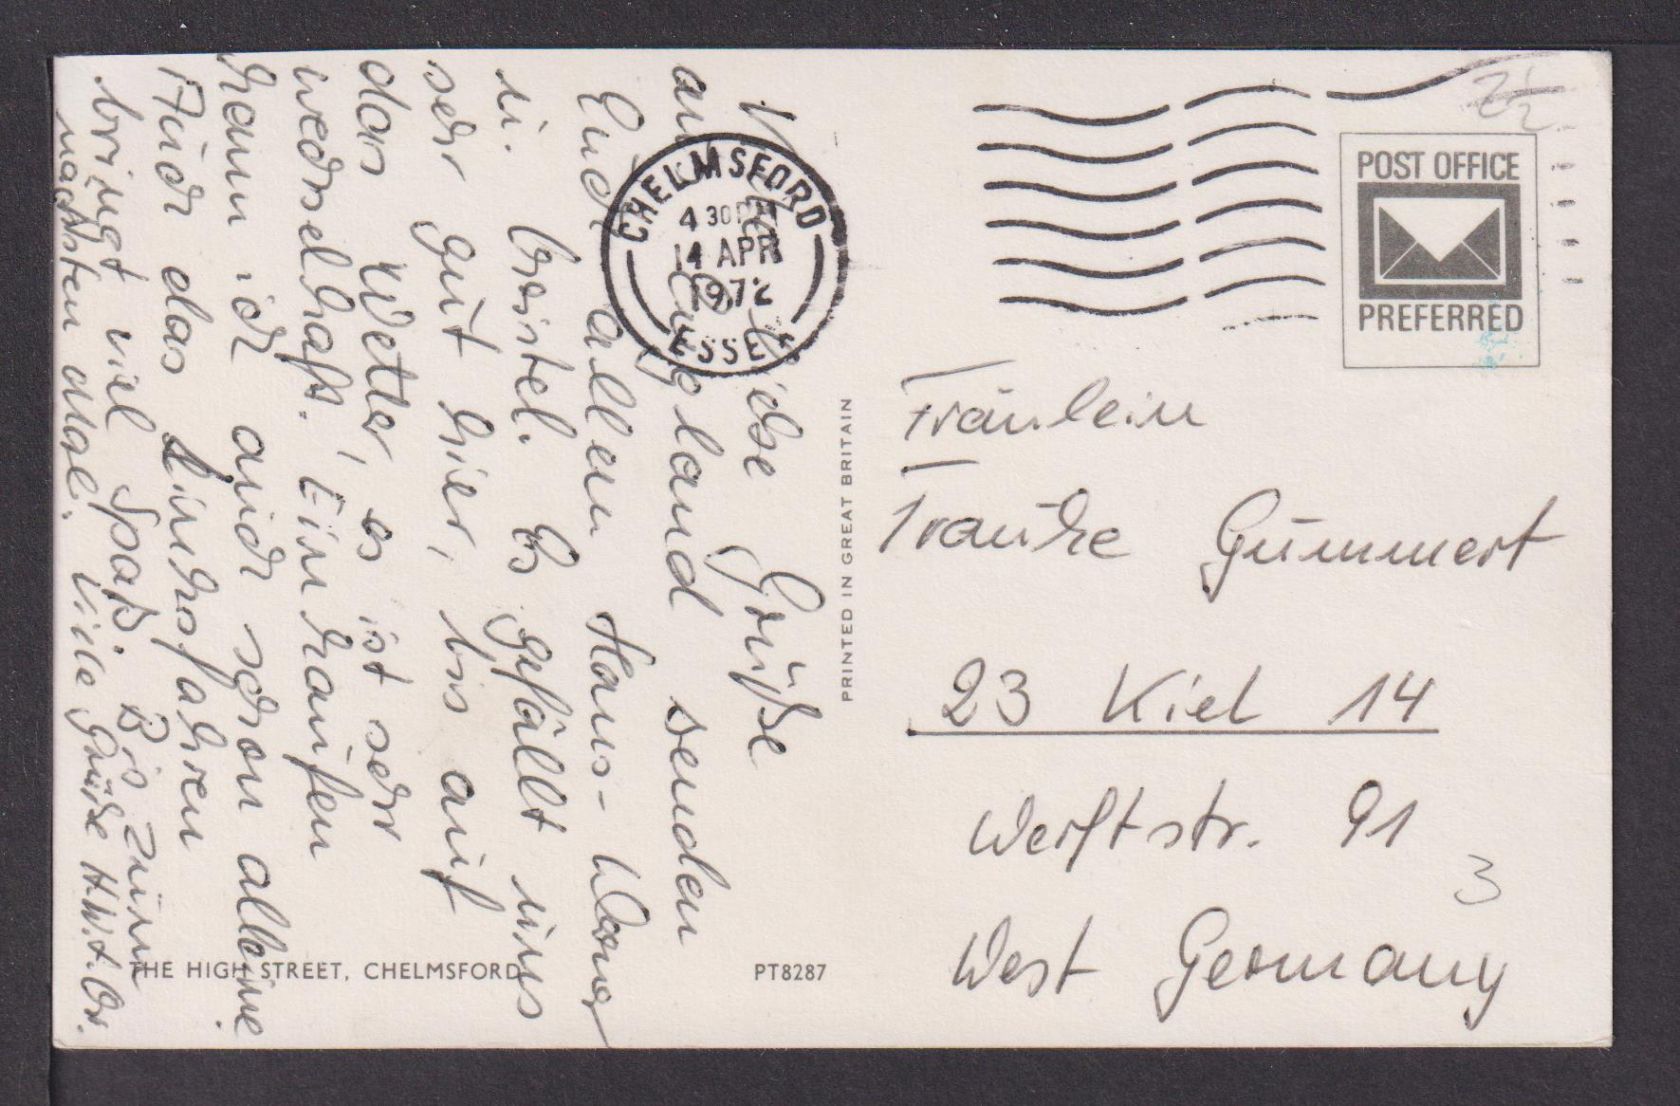 Grüße
aus England senden
Euch allen Hans-Werner
u. Christel. Es gefällt uns
sehr gut hier, bis auf
das Wetter, es ist sehr
wechselhaft. Einkaufen
kann ich auch schon alleine.
Auch das Linksfahren
bringt viel Spaß. Bis zum
nächsten Mal. Viele Grüße H.W.+Chr.
THE HIGH STREET, CHELMSFORD
PT8287
PRINTED IN GREAT BRITAIN
CHELMSFORD
4 30 PM
14 APR
1972
ESSEX
POST OFFICE
PREFERRED
Fräulein
Frauke Gummert
23 Kiel 14
Werftstr. 91
3
West Germany